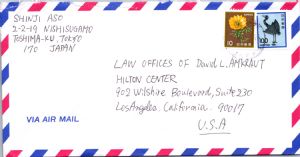 SHINJI ASO
2-2-19 NISHISUGAMO
TOSHIMA-KU, TOKYO
170 JAPAN
10
100
LAW OFFICES OF David L. AMKRAUT
HILTON CENTER
902 Wilshire Boulevard, Suite 230
Los Angeles. California. 90017
U.S.A
VIA AIR MAIL